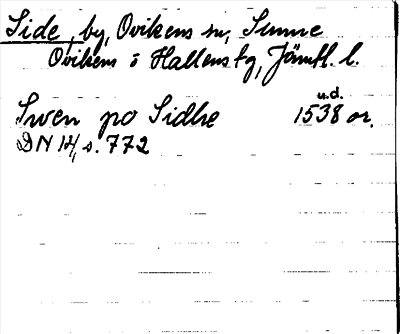 Side, by, Ovikens sn, Sunne
Ovikens o Hallens tg, Jämtl. l.
u.d.
Swen po Sidhe 1538 or.
DN 14, s. 772